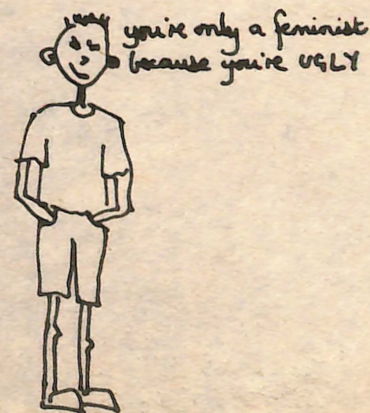 you're only a feminist
because you're UGLY